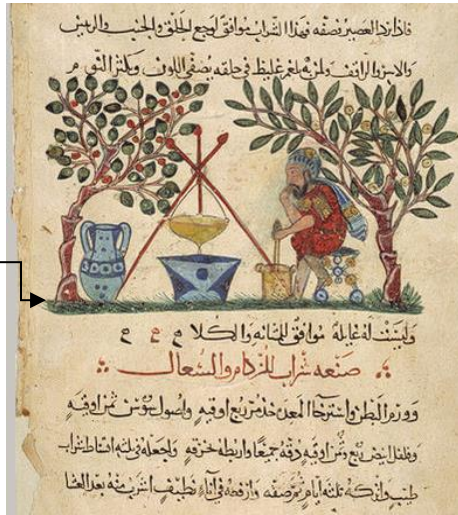 العصير نصفه فهذا الشراب موافق لوجع الحلق والجنب
ولمن به بلغم غليظ في حلقه يصفي اللون ويكثر النوم
وليست له غايله موافق للمثانه والكلا
صنعه شراب للزكام والسعال
وورم البطن واسترخا المعده خذ مر ربع اوقيه واصول سوسن ثمن اوقيه
وفلفل ابيض ربع وثمن اوقيه دقه جميعا واربطه بخرقه واجعله في ثلثه اقساط شراب
طيب واتركه ثلثه ايام ثم صفه وارفعه في اناء نظيف اشرب منه بعد العشا